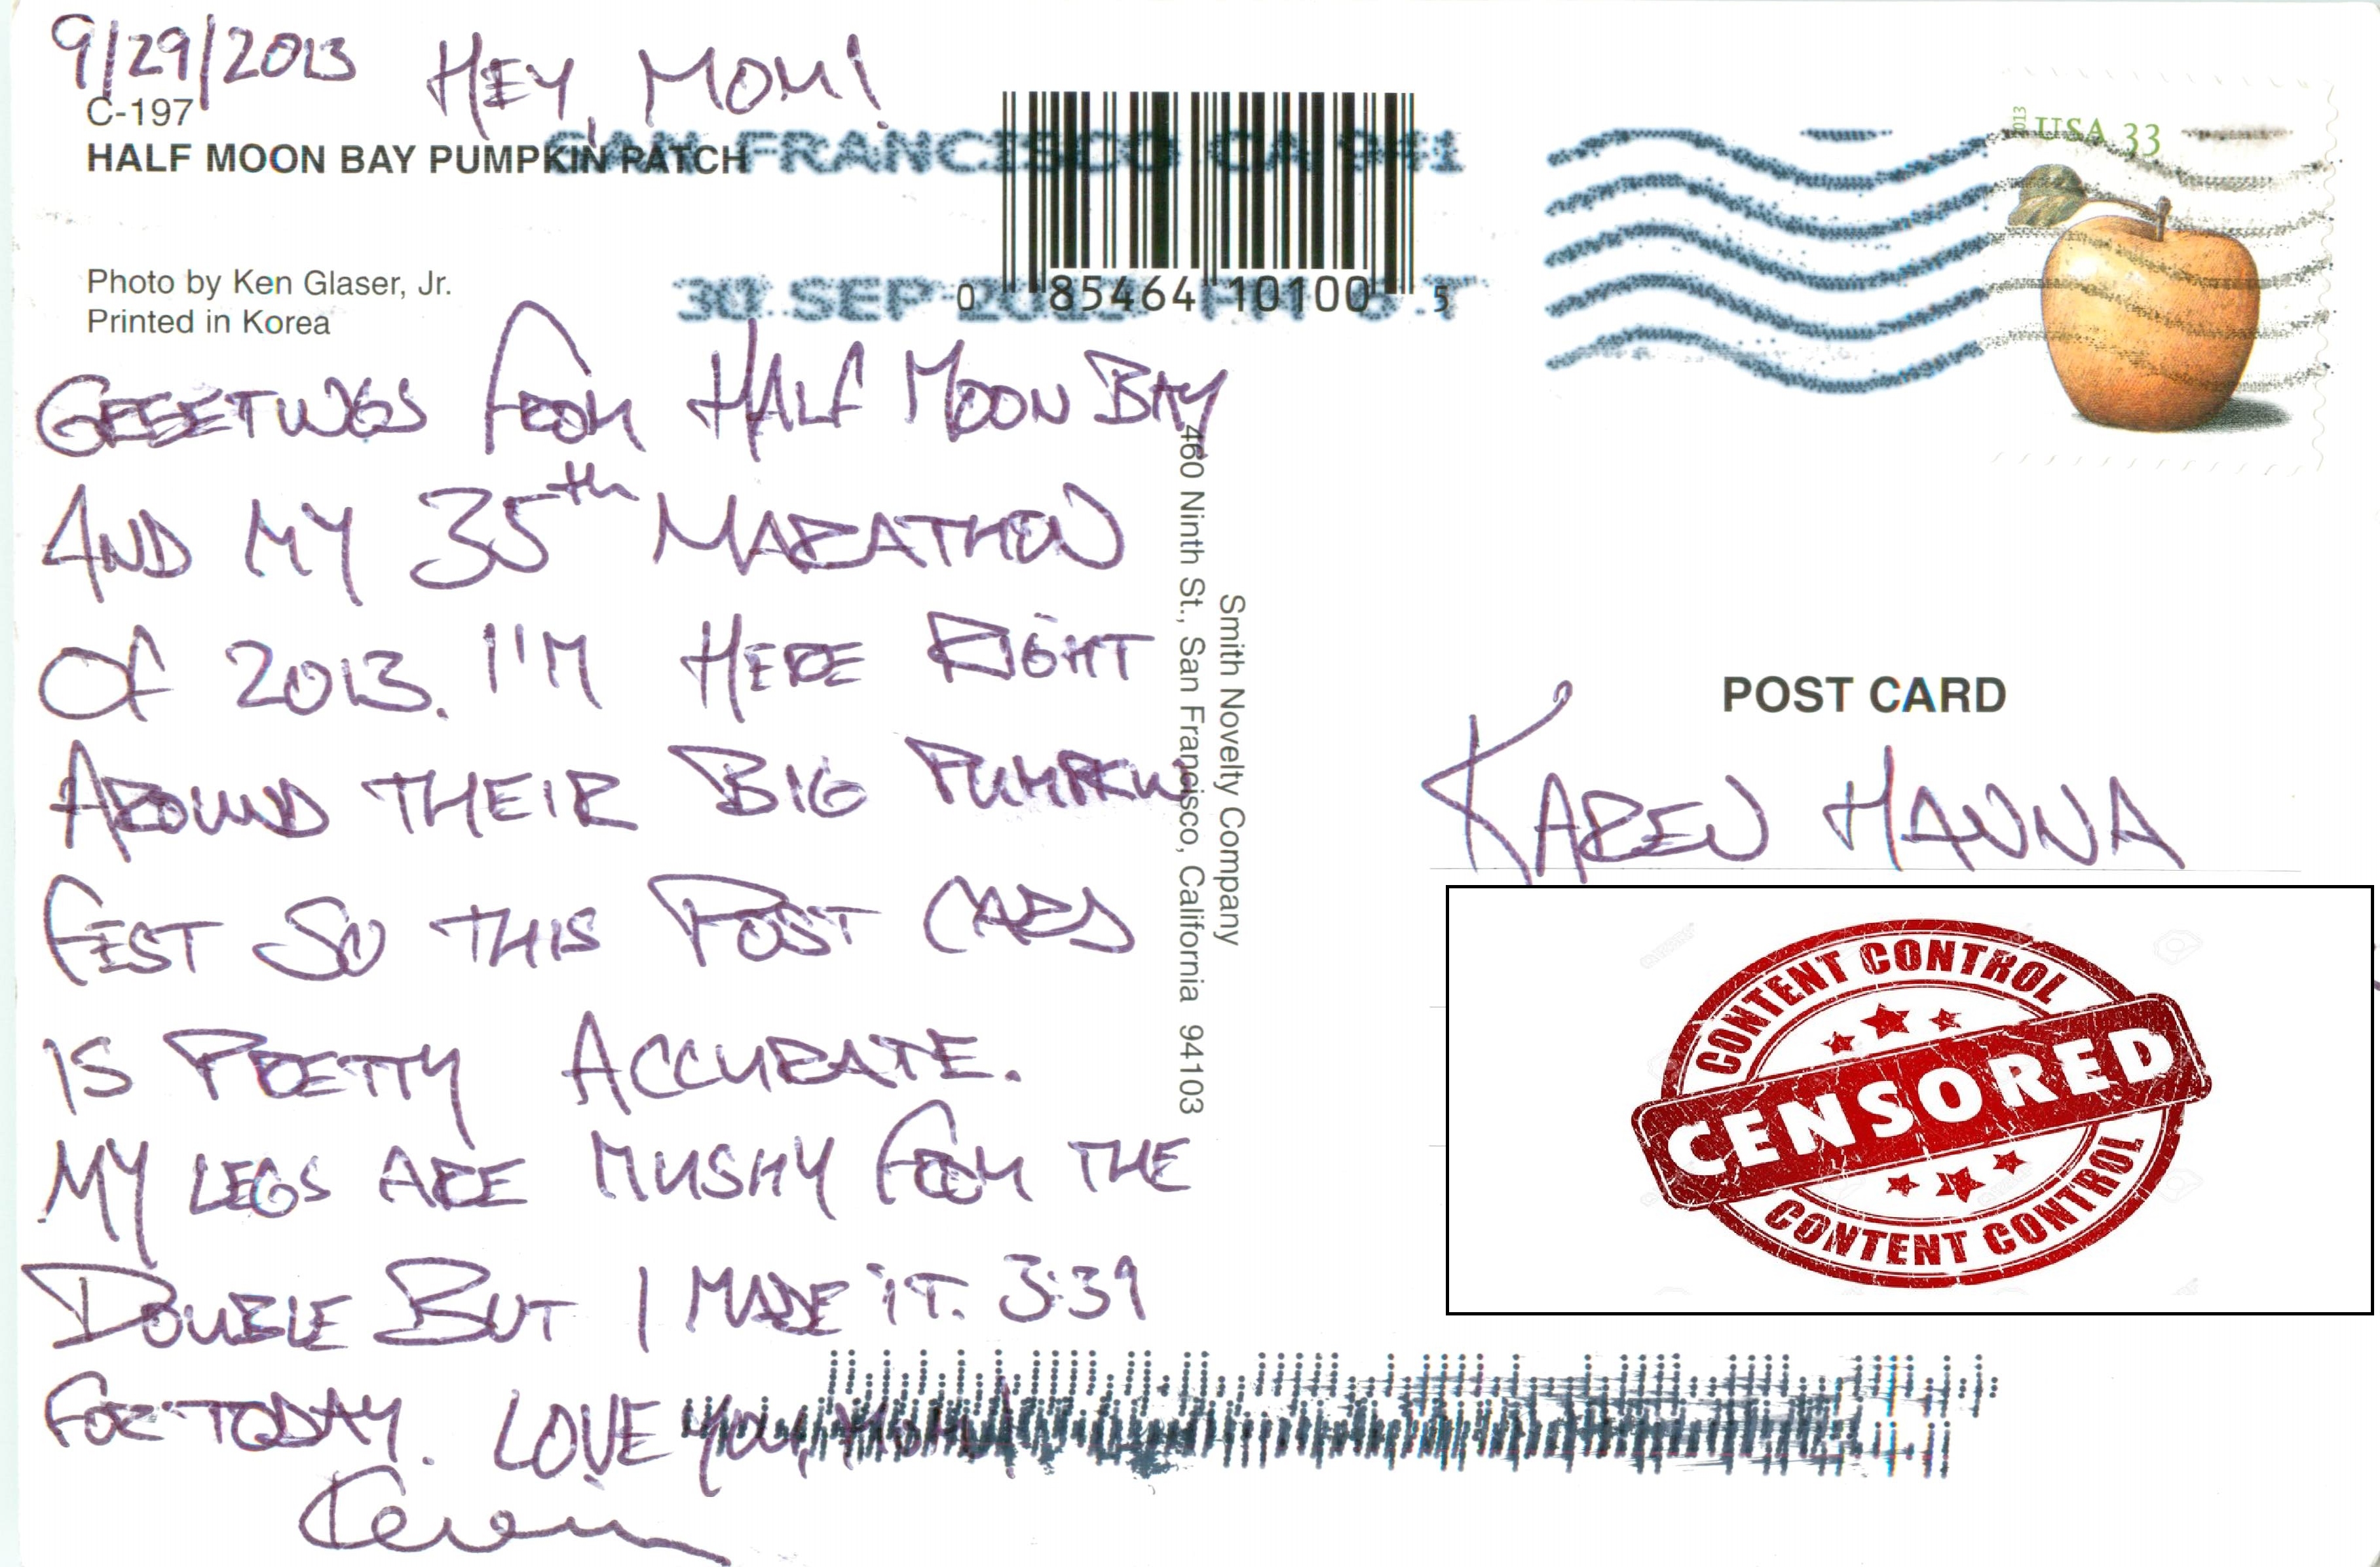 9/29/2013 HEY, MOM!
C-197
HALF MOON BAY PUMPKIN PATCH
SAN FRANCISCO CA 941
30 SEP 2013 PM
Photo by Ken Glaser, Jr.
Printed in Korea
0 85464 10100 5
2013 USA 33
GREETINGS FROM HALF MOON BAY
AND MY 35th MARATHON
OF 2013. I'M HERE RIGHT
AROUND THEIR BIG PUMPKIN
FEST SO THIS POST CARD
IS PRETTY ACCURATE.
MY LEGS ARE MUSHY FROM THE
DOUBLE BUT I MADE IT. 3:39
FOR TODAY. LOVE YOU, MOM!
Smith Novelty Company
460 Ninth St., San Francisco, California 94103
POST CARD
KAREN HANNA
CONTENT CONTROL
CENSORED
CONTENT CONTROL